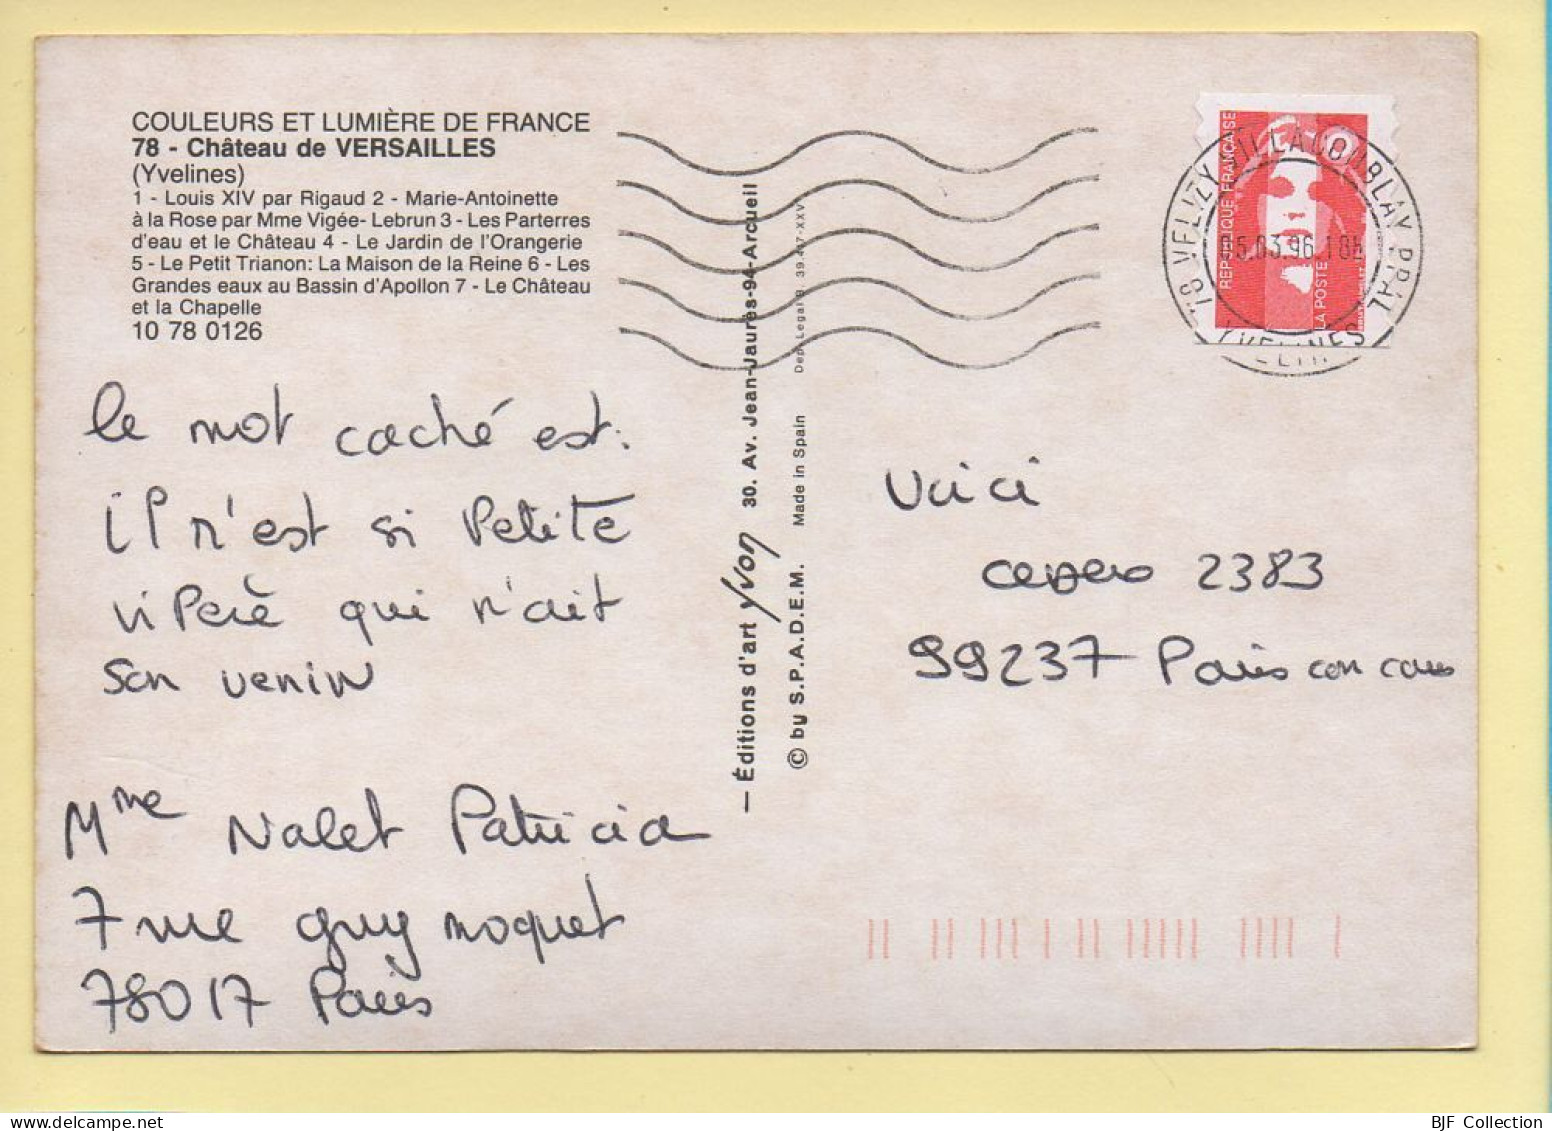 COULEURS ET LUMIÈRE DE FRANCE
78 - Château de VERSAILLES
(Yvelines)
1 - Louis XIV par Rigaud 2 - Marie-Antoinette
à la Rose par Mme Vigée- Lebrun 3 - Les Parterres
d'eau et le Château 4 - Le Jardin de l'Orangerie
5 - Le Petit Trianon: La Maison de la Reine 6 - Les
Grandes eaux au Bassin d'Apollon 7 - Le Château
et la Chapelle
10 78 0126
le mot caché est:
il n'est si petite
vipère qui n'ait
son venin
Mme Nalet Patricia
7 rue guy moquet
78017 Paris
— Éditions d'art Yvon 30. Av. Jean-Jaurès-94-Arcueil
© by S.P.A.D.E.M. Made in Spain Dep. Legal B. 39.407-XXV
RÉPUBLIQUE FRANÇAISE
LA POSTE
78 VELIZY VILLACOUBLAY PPAL
05.03.96.18H
YVELINES
Voici
cedex 2383
99237 Paris concours
BJF Collection